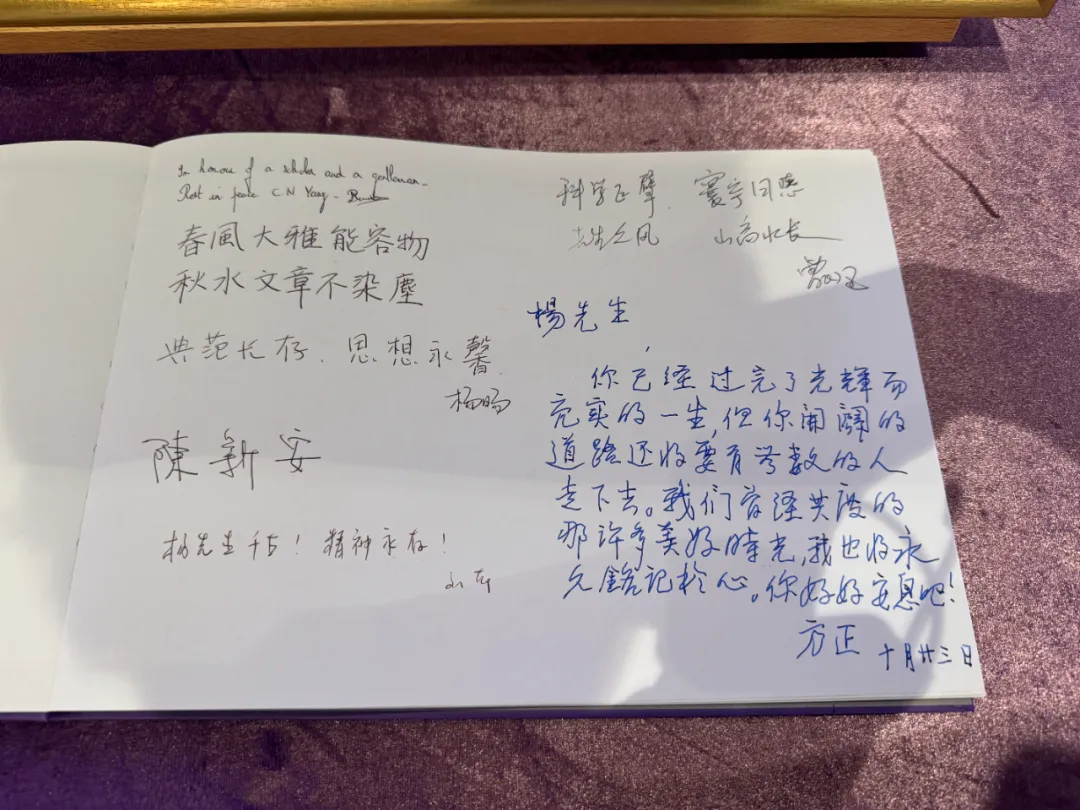 In honour of a scholar and a gentleman.
Rest in peace C.N Yang -
春風大雅能容物
秋水文章不染塵
典范长存.思想永馨.
杨旸
陳新安
杨先生千古!精神永存!
科学巨擘.寰宇同悲
先生之风 山高水长
楊先生,
你已经过完了光輝而
充实的一生,但你開闢的
道路还收要有无数的人
走下去。我们曾经共度的
那许多美好時光,我也将永
久銘记於心。你好好安息吧!
方正 十月廿三日